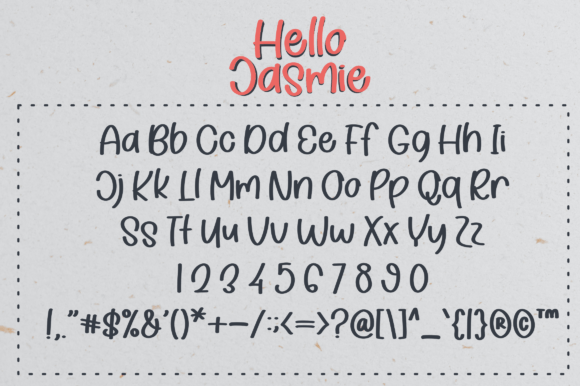 Hello
Jasmie
Aa Bb Cc Dd Ee Ff Gg Hh Ii
Jj Kk Ll Mm Nn Oo Pp Qq Rr
Ss Tt Uu Vv Ww Xx Yy Zz
1 2 3 4 5 6 7 8 9 0
!,."#$%&'()*+-/:;<=>?@[\]^_`{|}®©™